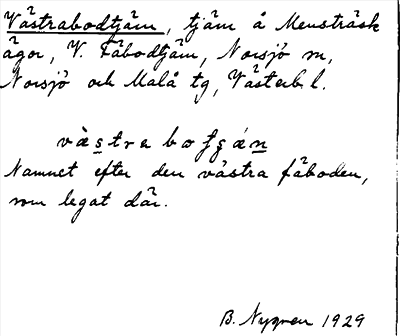 Västrabodtjärn, tjärn å Mensträsk
ägor, V. Fäbodtjärn, Norsjö sn,
Norsjö och Malå tg, Västerb. l.
västrabo
Namnet efter den västra fäboden,
som legat där.
B. Nygren 1929